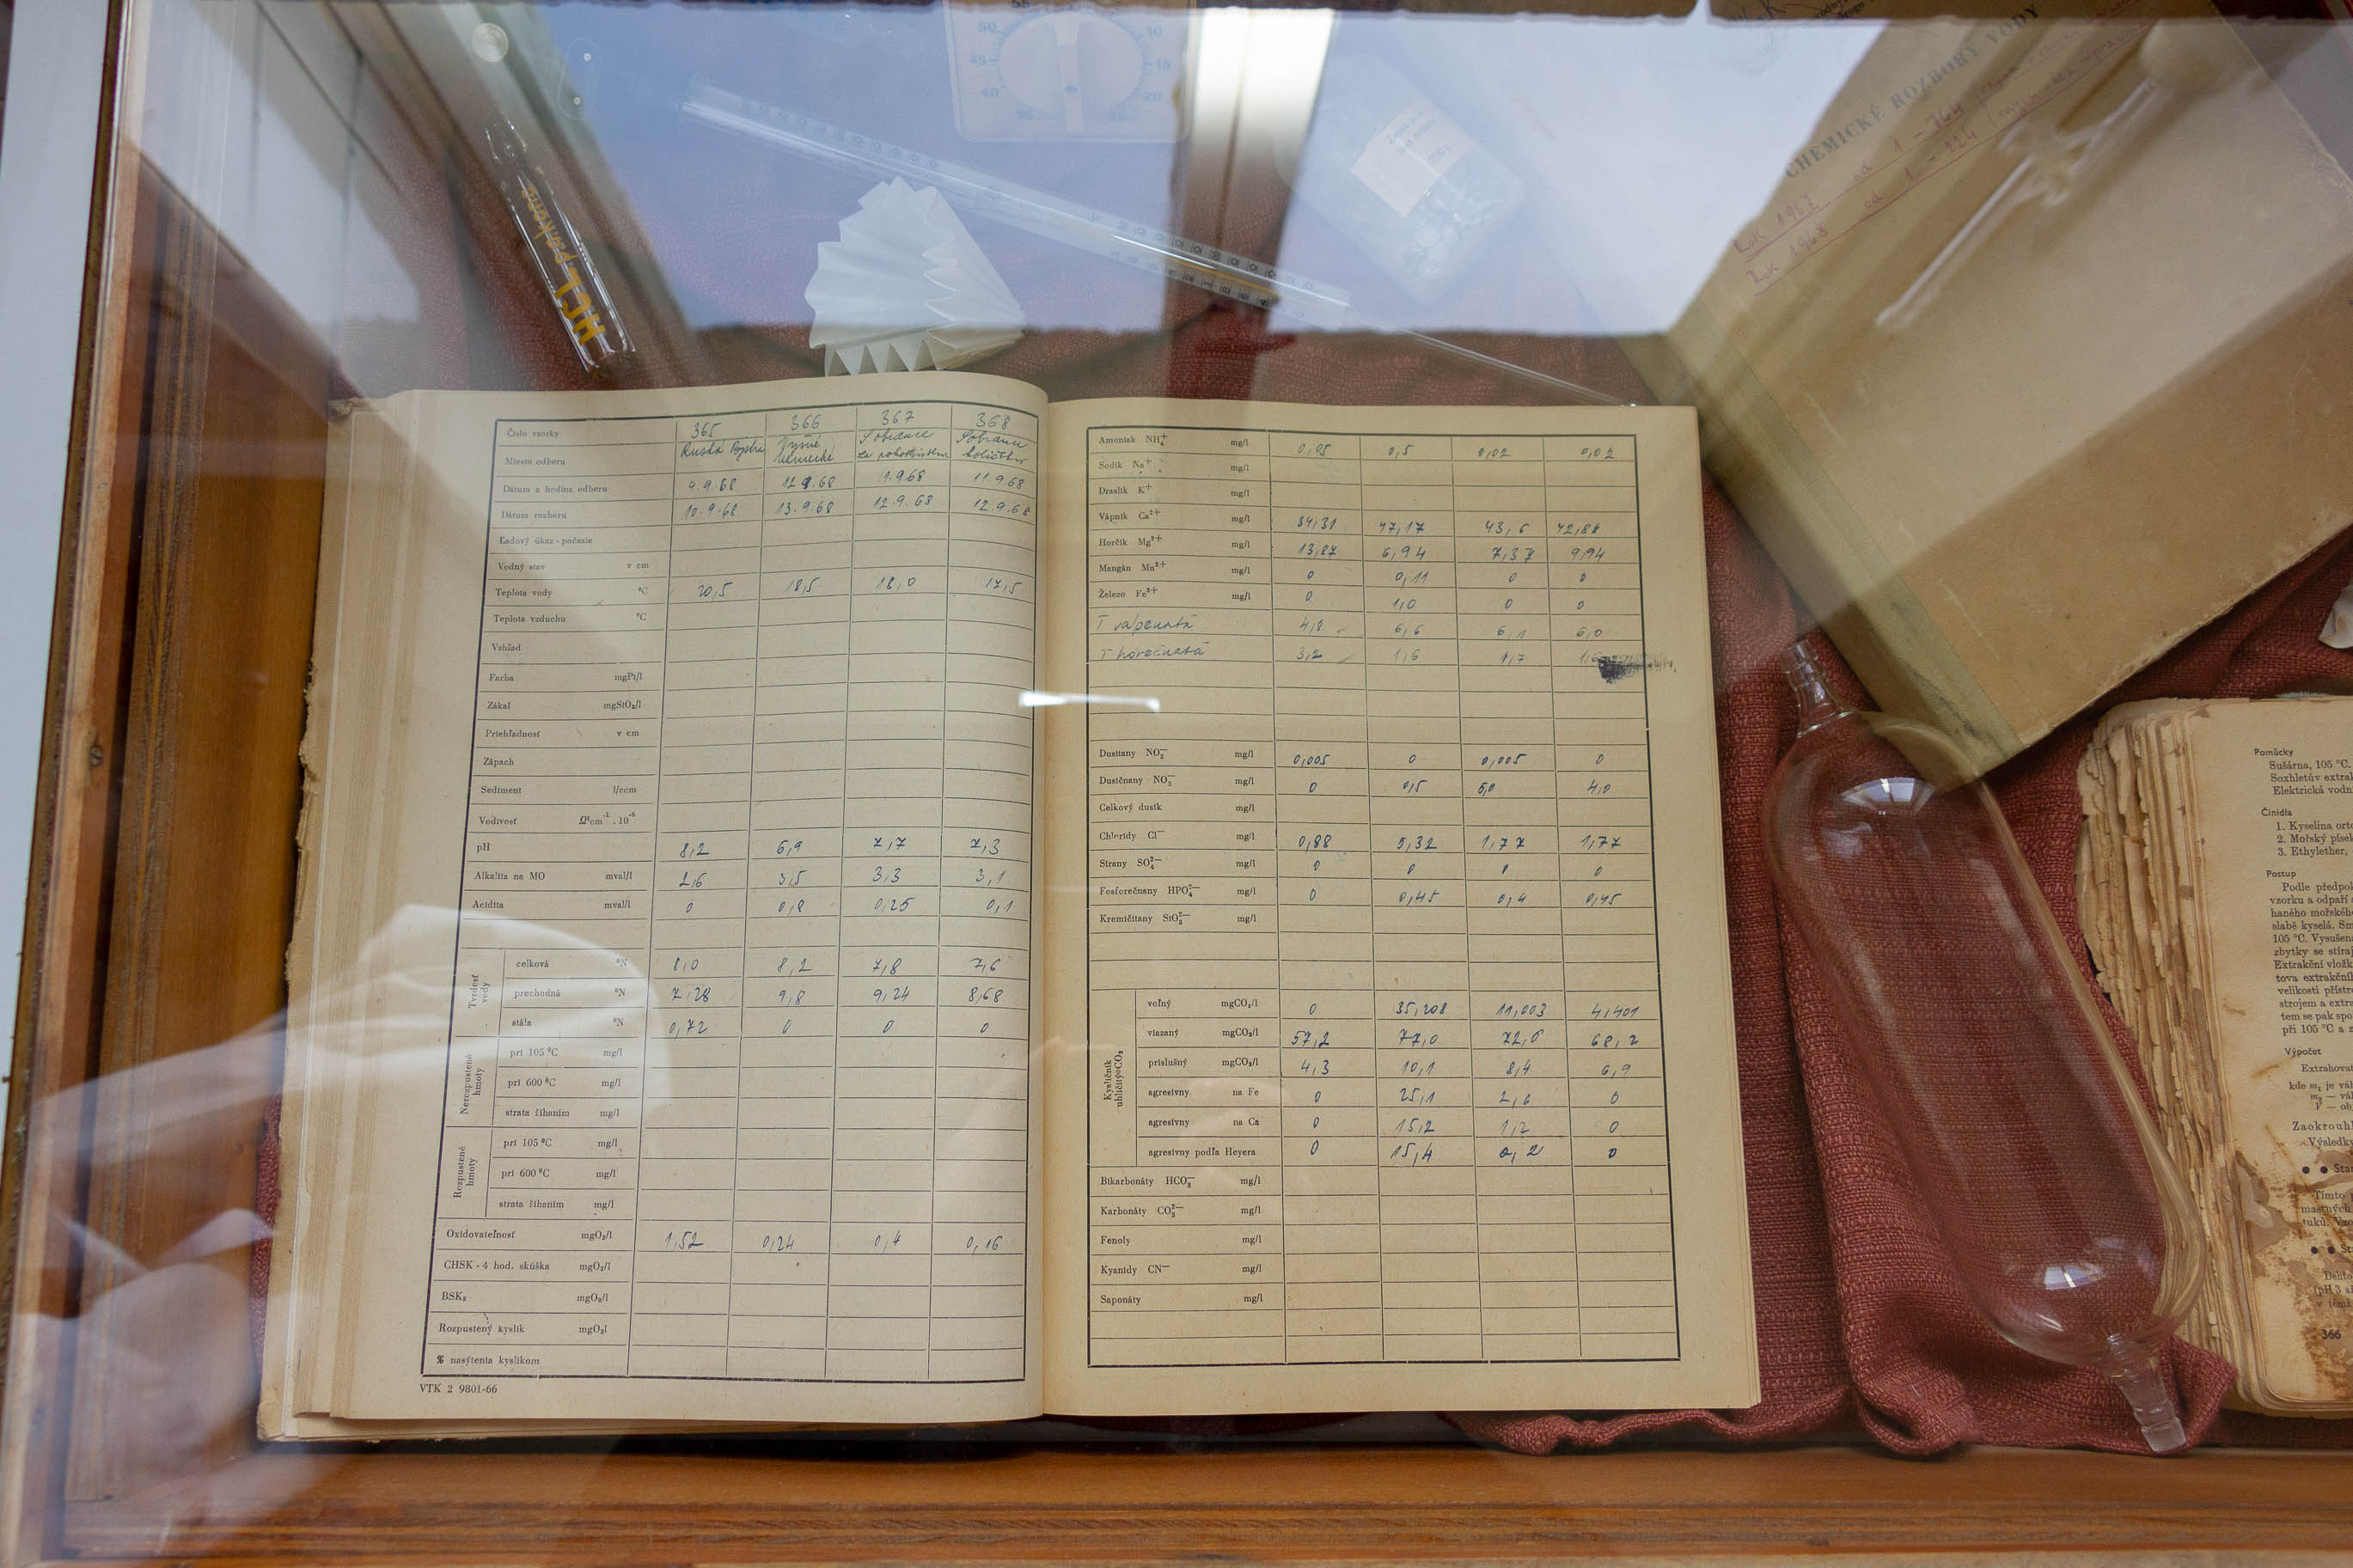 55
50
10
45
15
40
20
35
25
HCl
CHEMICKÉ ROZBORY VODY
Rok 1967 od 1 - 764
Rok 1968 od 1 - 224
Číslo vzorky 365 366 367 368
Miesto odberu Ruská Bystra Vyšné Nemecké Sobrance Sobrance
Dátum a hodina odberu 9.9.68 12.9.68 1.9.68 11.9.68
Dátum rozboru 10.9.68 13.9.68 12.9.68 12.9.68
Ľadový úkaz - počasie
Vodný stav v cm
Teplota vody °C 20,5 18,5 18,0 17,5
Teplota vzduchu °C
Vzhľad
Farba mgPt/l
Zákal mgSiO₂/l
Priehľadnosť v cm
Zápach
Sediment l/ccm
Vodivosť Ω⁻¹cm⁻¹ . 10⁻⁶
pH 8,2 6,9 7,7 7,3
Alkalita na MO mval/l 2,6 3,5 3,3 3,1
Acidita mval/l 0 0,8 0,25 0,1
Tvrdosť vody
celková °N 8,0 8,2 7,8 7,6
prechodná °N 7,28 9,8 9,24 8,68
stála °N 0,72 0 0 0
Nerozpustené hmoty
pri 105 °C mg/l
pri 600 °C mg/l
strata žíhaním mg/l
Rozpustené hmoty
pri 105 °C mg/l
pri 600 °C mg/l
strata žíhaním mg/l
Oxidovateľnosť mgO₂/l 1,52 0,24 0,4 0,16
CHSK - 4 hod. skúška mgO₂/l
BSK₅ mgO₂/l
Rozpustený kyslík mgO₂l
% nasýtenia kyslíkom
VTK 2 9801-66
Amoniak NH₄⁺ mg/l 0,05 0,5 0,02 0,02
Sodík Na⁺ mg/l
Draslík K⁺ mg/l
Vápnik Ca²⁺ mg/l 34,31 47,17 43,6 42,88
Horčík Mg²⁺ mg/l 13,87 6,94 7,37 9,94
Mangán Mn²⁺ mg/l 0 0,11 0 0
Železo Fe²⁺ mg/l 0 1,0 0 0
T vápenatá 4,8 6,6 6,1 6,0
T horečnatá 3,2 1,6 1,7 1,6
Dusitany NO₂⁻ mg/l 0,005 0 0,005 0
Dusičnany NO₃⁻ mg/l 0 0,5 5,0 4,0
Celkový dusík mg/l
Chloridy Cl⁻ mg/l 0,88 5,32 1,77 1,77
Sírany SO₄²⁻ mg/l 0 0 0 0
Fosforečnany HPO₄²⁻ mg/l 0 0,45 0,4 0,45
Kremičitany SiO₃²⁻ mg/l
Kysličník uhličitý=CO₂
voľný mgCO₂/l 0 35,208 11,003 4,401
viazaný mgCO₂/l 57,2 77,0 72,6 68,2
príslušný mgCO₂/l 4,3 10,1 8,4 6,9
agresívny na Fe 0 25,1 2,6 0
agresívny na Ca 0 15,2 1,2 0
agresívny podľa Heyera 0 15,4 0,2 0
Bikarbonáty HCO₃⁻ mg/l
Karbonáty CO₃²⁻ mg/l
Fenoly mg/l
Kyanidy CN⁻ mg/l
Saponáty mg/l
Pomůcky
Sušárna, 105 °C.
Soxhletův
Elektrická
Činidla
1. Kyselina
2. Mořský
3. Ethylether,
Postup
Podle
vzorku a odpaří
haného
slabě kyselá.
105 °C.
zbytky se
Extrakční
tova
velikosti
strojem a
tem se pak
při 105 °C a
Výpočet
kde m₁ je
m₂ —
V —
366